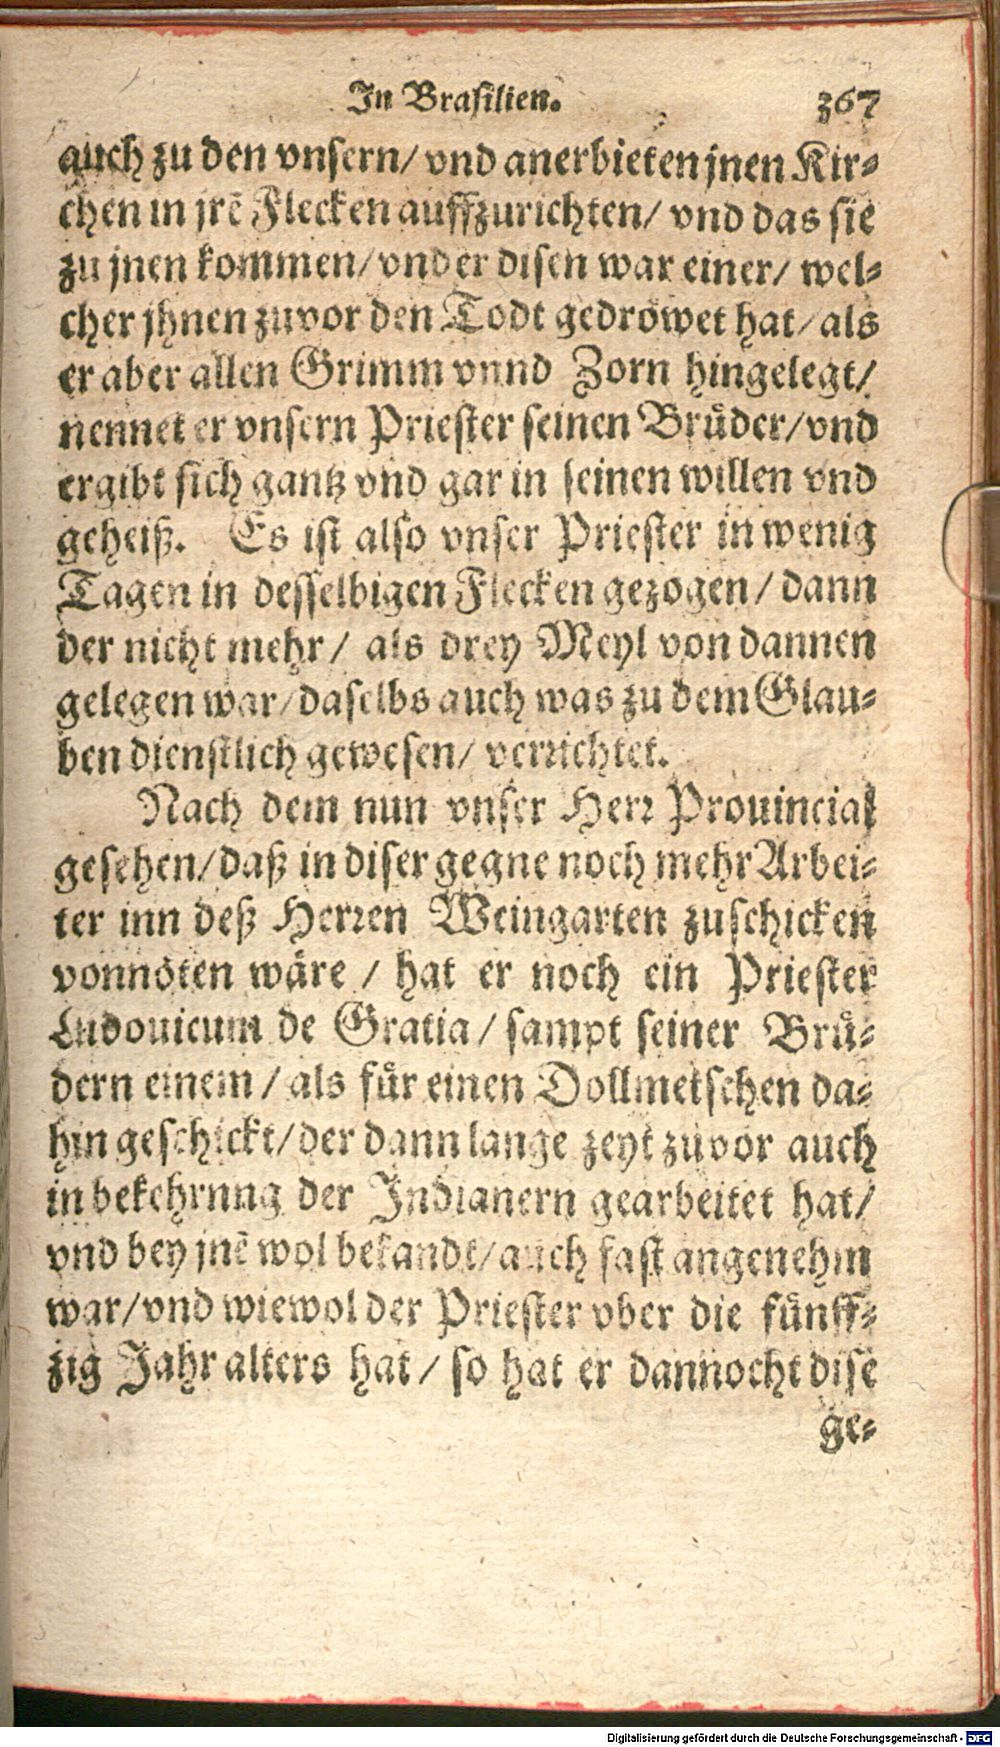 In Brasilien. 367
auch zu den vnsern/ vnd anerbieten jnen Kir-
chen in jrẽ Flecken auffzurichten/ vnd das sie
zu jnen kommen/ vnd er disen war einer/ wel-
cher jhnen zuvor den Todt gedröwet hat/ als
er aber allen Grimm vnnd Zorn hingelegt/
nennet er vnsern Priester seinen Brůder/ vnd
ergibt sich gantz vnd gar in seinen willen vnd
geheiß. Es ist also vnser Priester in wenig
Tagen in desselbigen Flecken gezogen/ dann
der nicht mehr/ als drey Meyl von dannen
gelegen war/ daselbs auch was zu dem Glau-
ben dienstlich gewesen/ verrichtet.
Nach dem nun vnser Herr Prouincial
gesehen/ daß in diser gegne noch mehr Arbei-
ter inn deß Herren Weingarten zuschicken
vonnöten wäre / hat er noch ein Priester
Ludouicum de Gratia/ sampt seiner Brů-
dern einem / als für einen Dollmetschen da-
hin geschickt/ der dann lange zeyt zůvor auch
in bekehrnng der Indianern gearbeitet hat/
vnd bey jnẽ wol bekandt/ auch fast angenehm
war/ vnd wiewol der Priester vber die fünff-
zig Jahr alters hat / so hat er dannocht dise
ge-
Digitalisierung gefördert durch die Deutsche Forschungsgemeinschaft - DFG